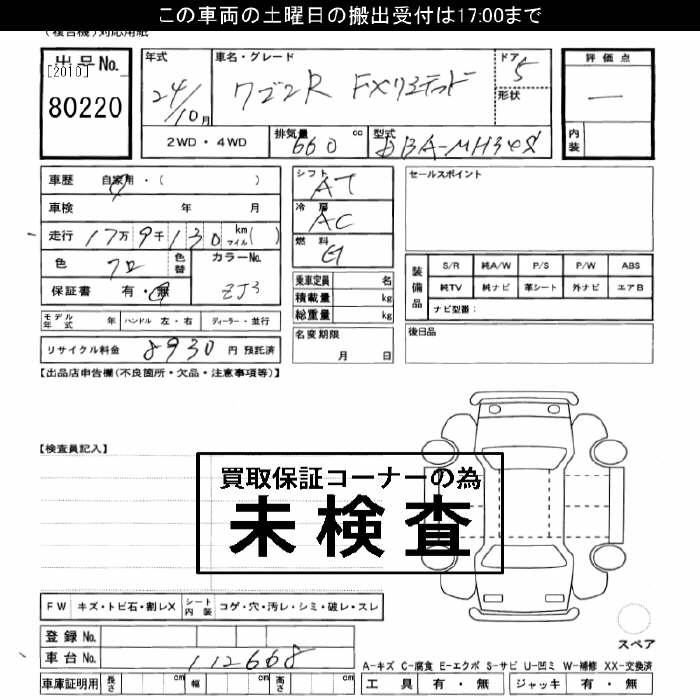 この車両の土曜日の搬出受付は17:00まで
(複合機)対応用紙
出品No.
[2010]
80220
年式
24/10月
車名・グレード
ワゴンR FXリミテッド
ドア
5
形状
評価点
—
内装
2WD・4WD
排気量
660 cc
型式
DBA-MH34S
車歴 自家用・( )
車検 年 月
走行 17万9千130 km マイル( )
色 クロ
色替
カラーNo.
ZJ3
保証書 有・無
モデル年式 年 ハンドル 左・右 ディーラー・並行
リサイクル料金 8930 円 預託済
シフト
AT
冷房
AC
燃料
G
乗車定員 名
積載量 kg
総重量 kg
名変期限
月 日
セールスポイント
装備品
S/R 純A/W P/S P/W ABS
純TV 純ナビ 革シート 外ナビ エアB
ナビ型番:
後日品
【出品店申告欄(不良箇所・欠品・注意事項等)】
【検査員記入】
買取保証コーナーの為
未検査
FW キズ・トビ石・割レX シート内装 コゲ・穴・汚レ・シミ・破レ・スレ
登録No.
車台No. 112668
車庫証明用 長さ cm 幅 cm 高さ cm
スペア
A-キズ C-腐食 E-エクボ S-サビ U-凹ミ W-補修 XX-交換済
工具 有・無 ジャッキ 有・無